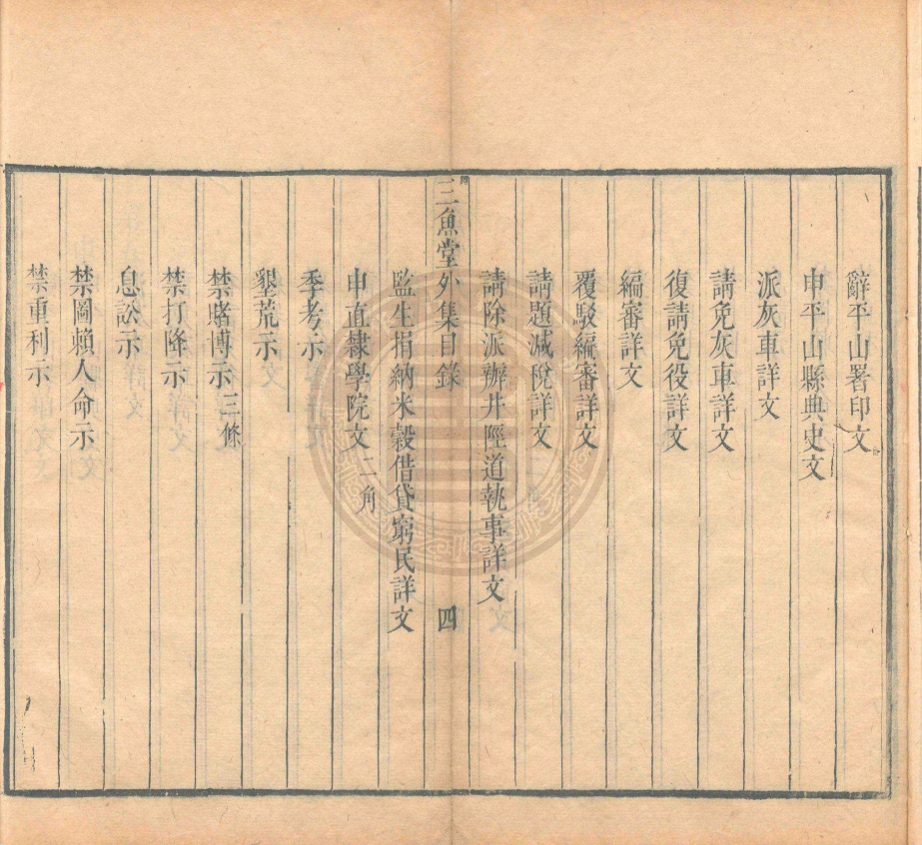 辭平山署印文
申平山縣典史文
派灰車詳文
請免灰車詳文
復請免役詳文
編審詳文
覆駁編審詳文
請題減稅詳文
請除派辦井陘道執事詳文
三魚堂外集目錄 四
監生捐納米穀借貸窮民詳文
申直隸學院文二角
季考示
墾荒示
禁賭博示三條
禁打降示
息訟示
禁圖賴人命示
禁重利示